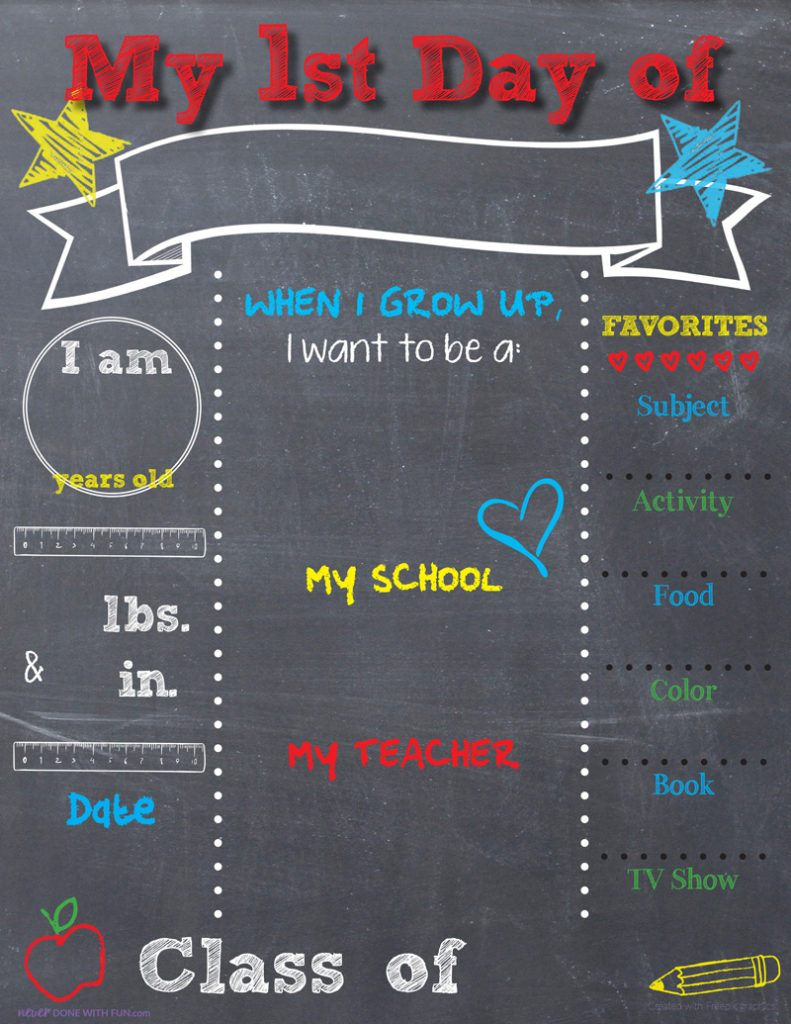 My 1st Day of
WHEN I GROW UP,
I want to be a:
I am
years old
0 1 2 3 4 5 6 7 8 9 10
lbs.
& in.
0 1 2 3 4 5 6 7 8 9 10
Date
MY SCHOOL
MY TEACHER
FAVORITES
Subject
Activity
Food
Color
Book
TV Show
Class of
never DONE WITH FUN.com
Created with Freepik graphics